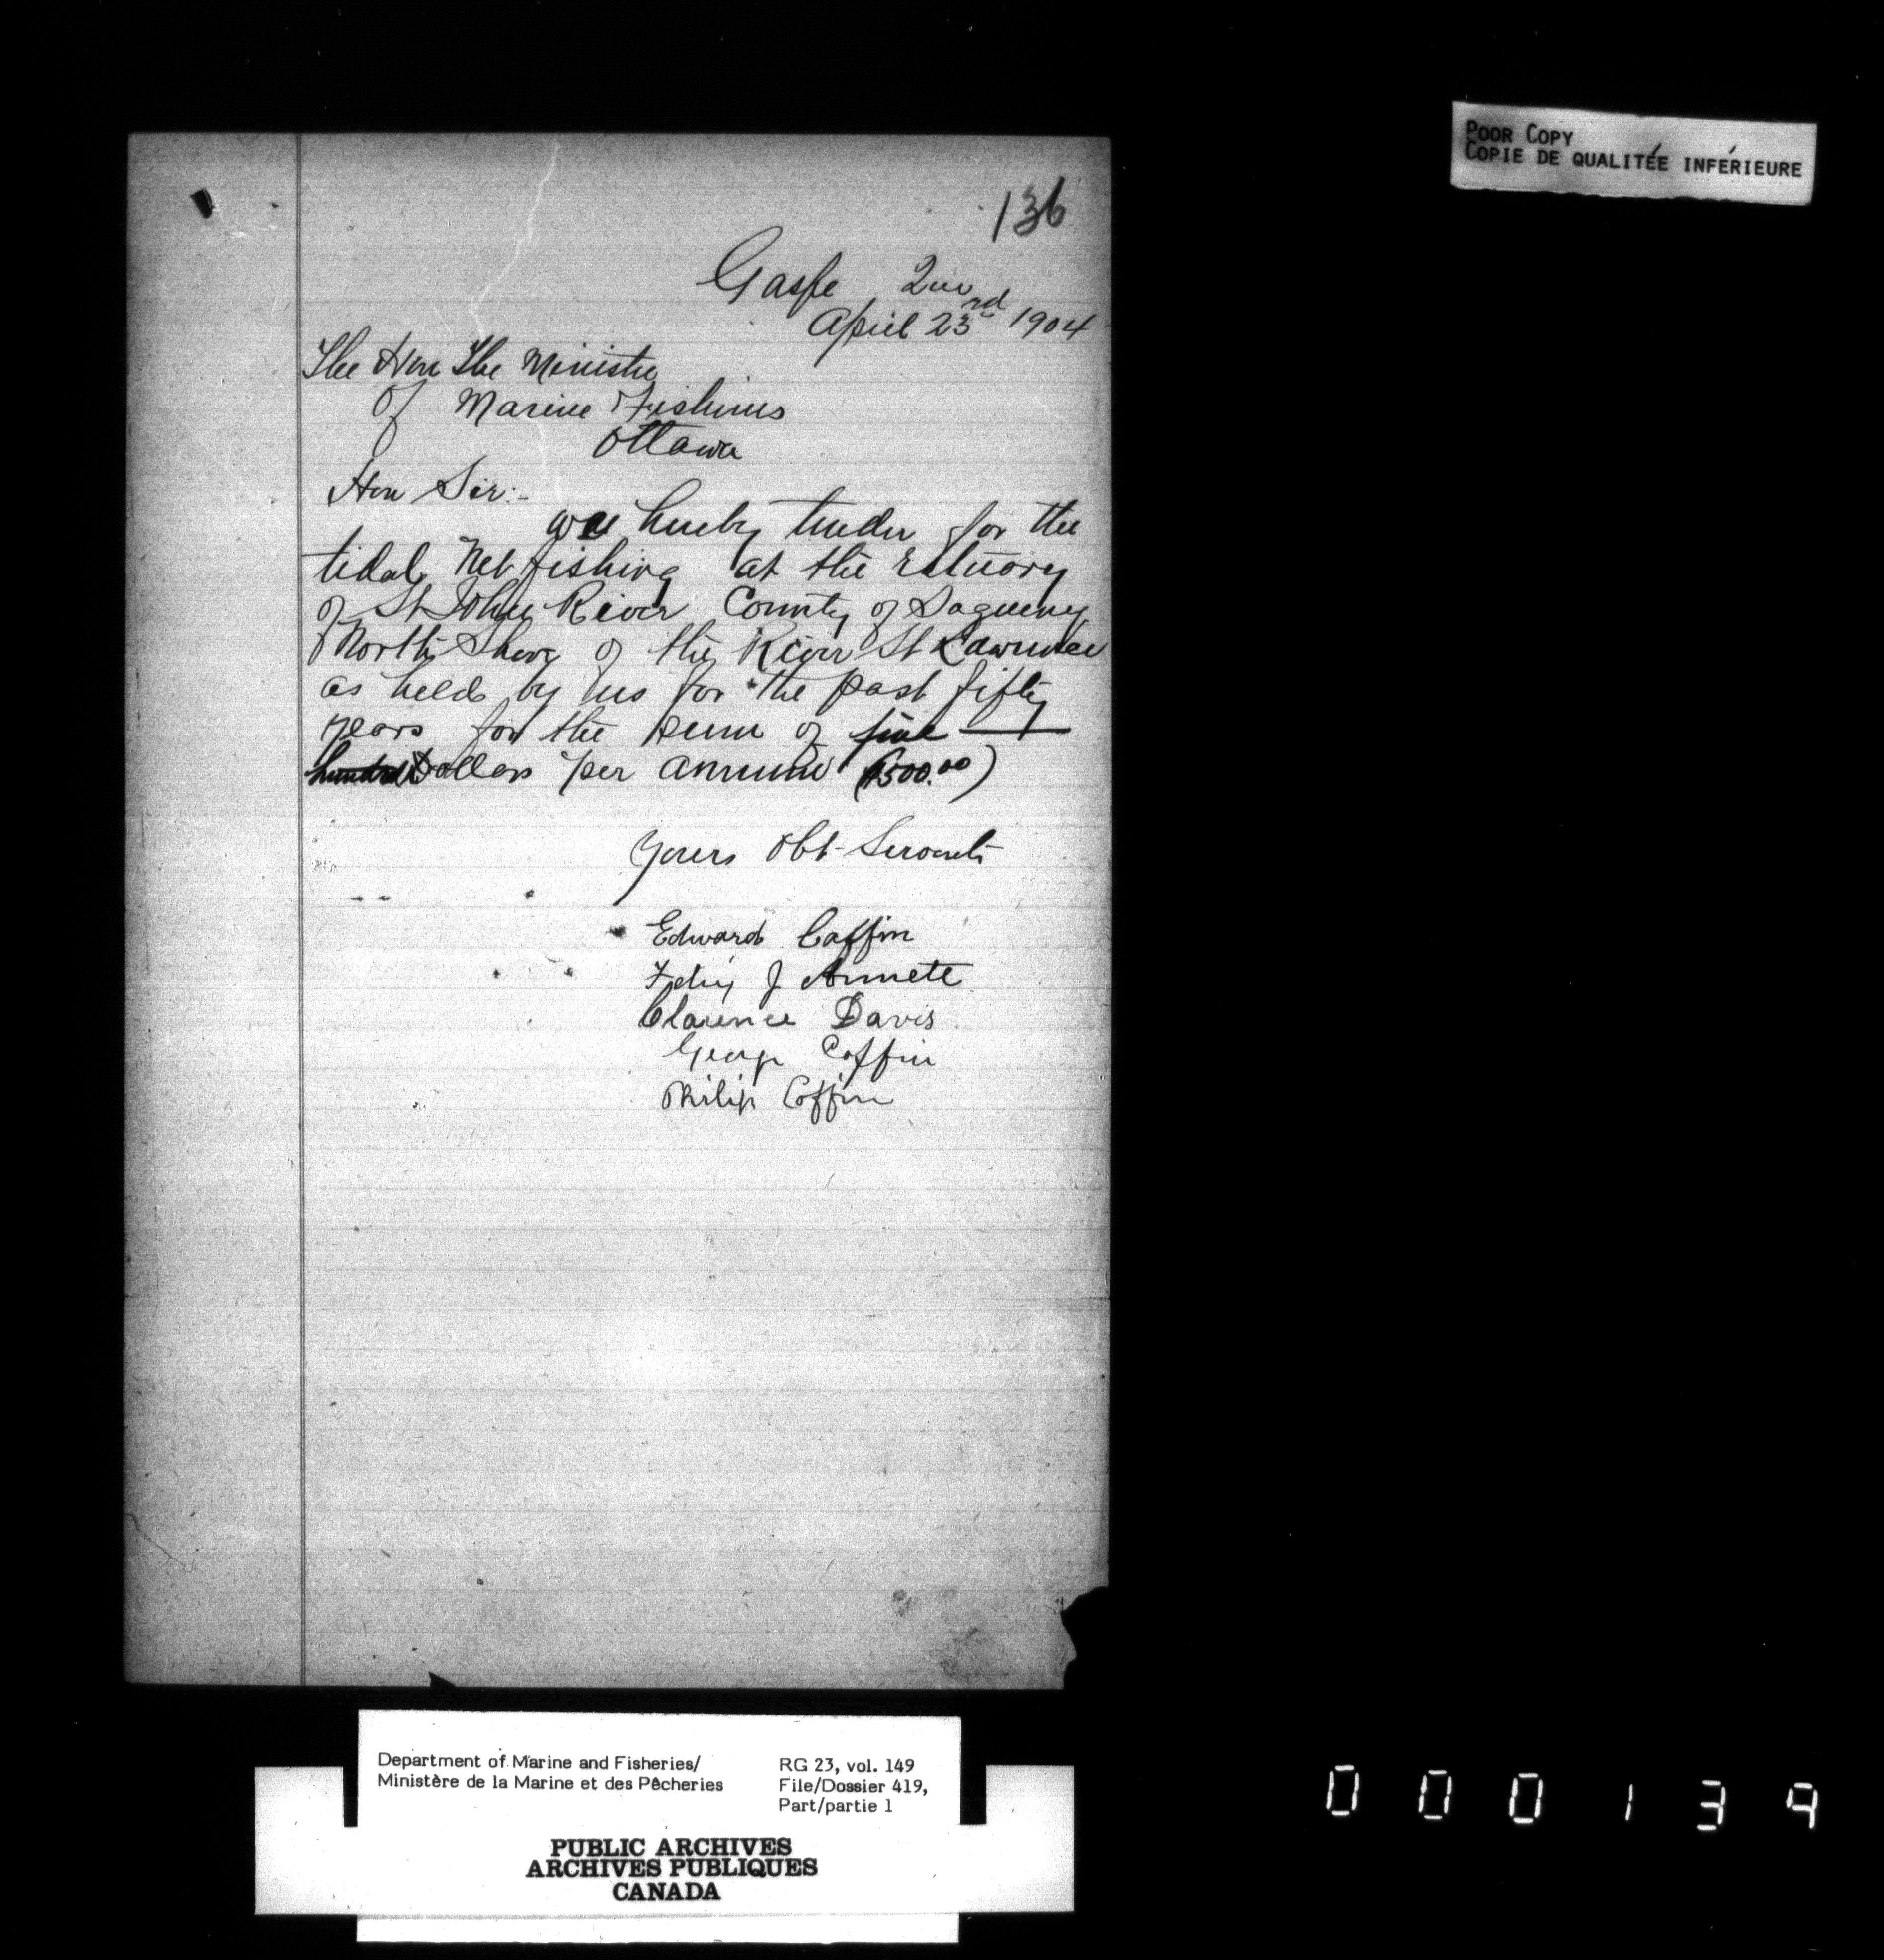 POOR COPY
COPIE DE QUALITÉE INFÉRIEURE
136
Gaspe Que
April 23rd 1904
The Hon The Minister
Of Marine Fisheries
Ottawa
Hon Sir:-
We hereby tender for the
tidal Net fishing at the Estuary
of St John River County of Saguenay
North Shore of the River St Lawrence
as held by us for the past fifty
years for the sum of five
hundred Dollars per annum ($500.00)
Yours Obt Servants
Edward Coffin
J Annett
Clarence Davis
George Coffin
Philip Coffin
Department of Marine and Fisheries/
Ministère de la Marine et des Pêcheries
RG 23, vol. 149
File/Dossier 419,
Part/partie 1
PUBLIC ARCHIVES
ARCHIVES PUBLIQUES
CANADA
000139